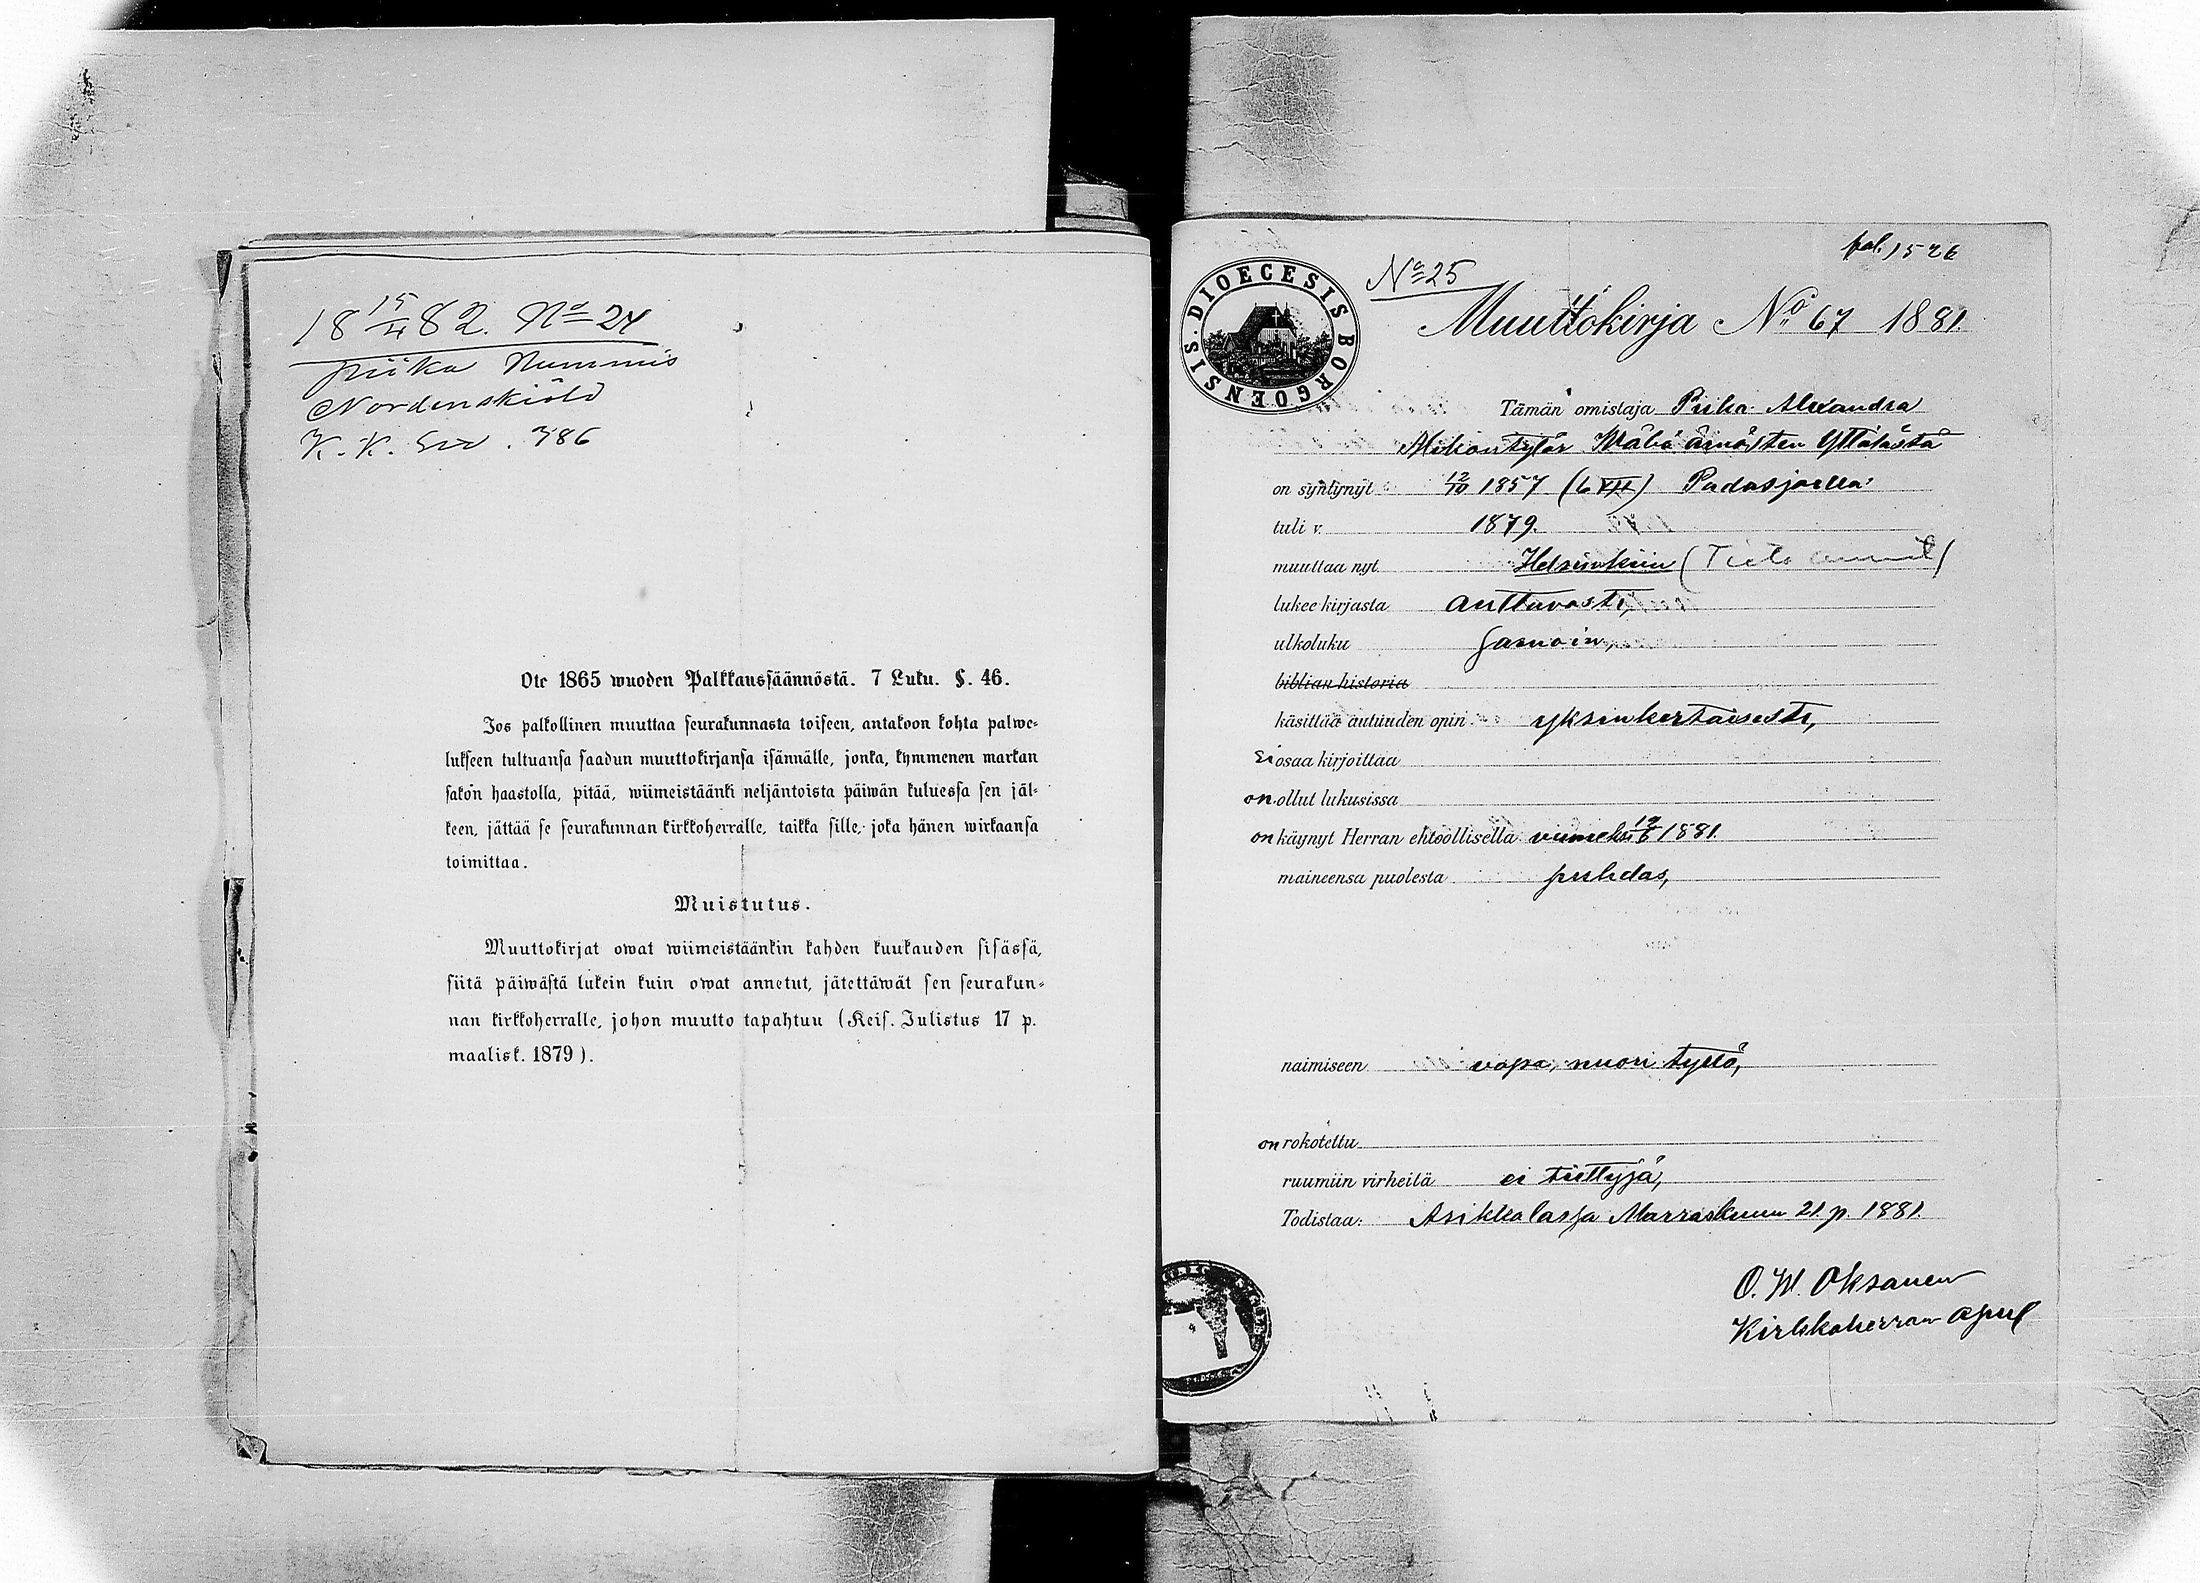 18 15/4 82. No 24
piika Nummis
Nordenskiöld
K. K. Siv. 386
Ote 1865 wuoden Palkkaussäännöstä. 7 Luku. §. 46.
Jos palkollinen muuttaa seurakunnasta toiseen, antakoon kohta palwe-
lukseen tultuansa saadun muuttokirjansa isännälle, jonka, kymmenen markan
sakon haastolla, pitää, wiimeistäänki neljäntoista päiwän kuluessa sen jäl-
keen, jättää se seurakunnan kirkkoherralle, taikka sille, joka hänen wirkaansa
toimittaa.
Muistutus.
Muuttokirjat owat wiimeistäänkin kahden kuukauden sisässä,
siitä päiwästä lukein kuin owat annetut, jätettäwät sen seurakun-
nan kirkkoherralle, johon muutto tapahtuu (Keis. Julistus 17 p.
maalisk. 1879).
pal. 1526
No 25
DIOECESIS BORGOENSIS
Muuttokirja No 67 1881.
Tämän omistaja Piika Alexandra
Mikontytär Wähä Äiniöisten Yttälästä
on syntynyt 12/10 1857 (6 XII) Padasjoella
tuli v. 1879.
muuttaa nyt Helsinkiin (Tieto
lukee kirjasta auttavasti,
ulkoluku samoin,
biblian historia
käsittää autuuden opin yksinkertaisesti,
Ei osaa kirjoittaa
on ollut lukusissa
on käynyt Herran ehtoollisella viimeksi 19/6 1881.
maineensa puolesta puhdas,
naimiseen vapa, nuori tyttö,
on rokotettu
ruumiin virheitä ei tiettyjä,
Todistaa: Asikkalassa Marraskuun 21 p. 1881.
O. W. Oksanen
Kirkkoherran apul